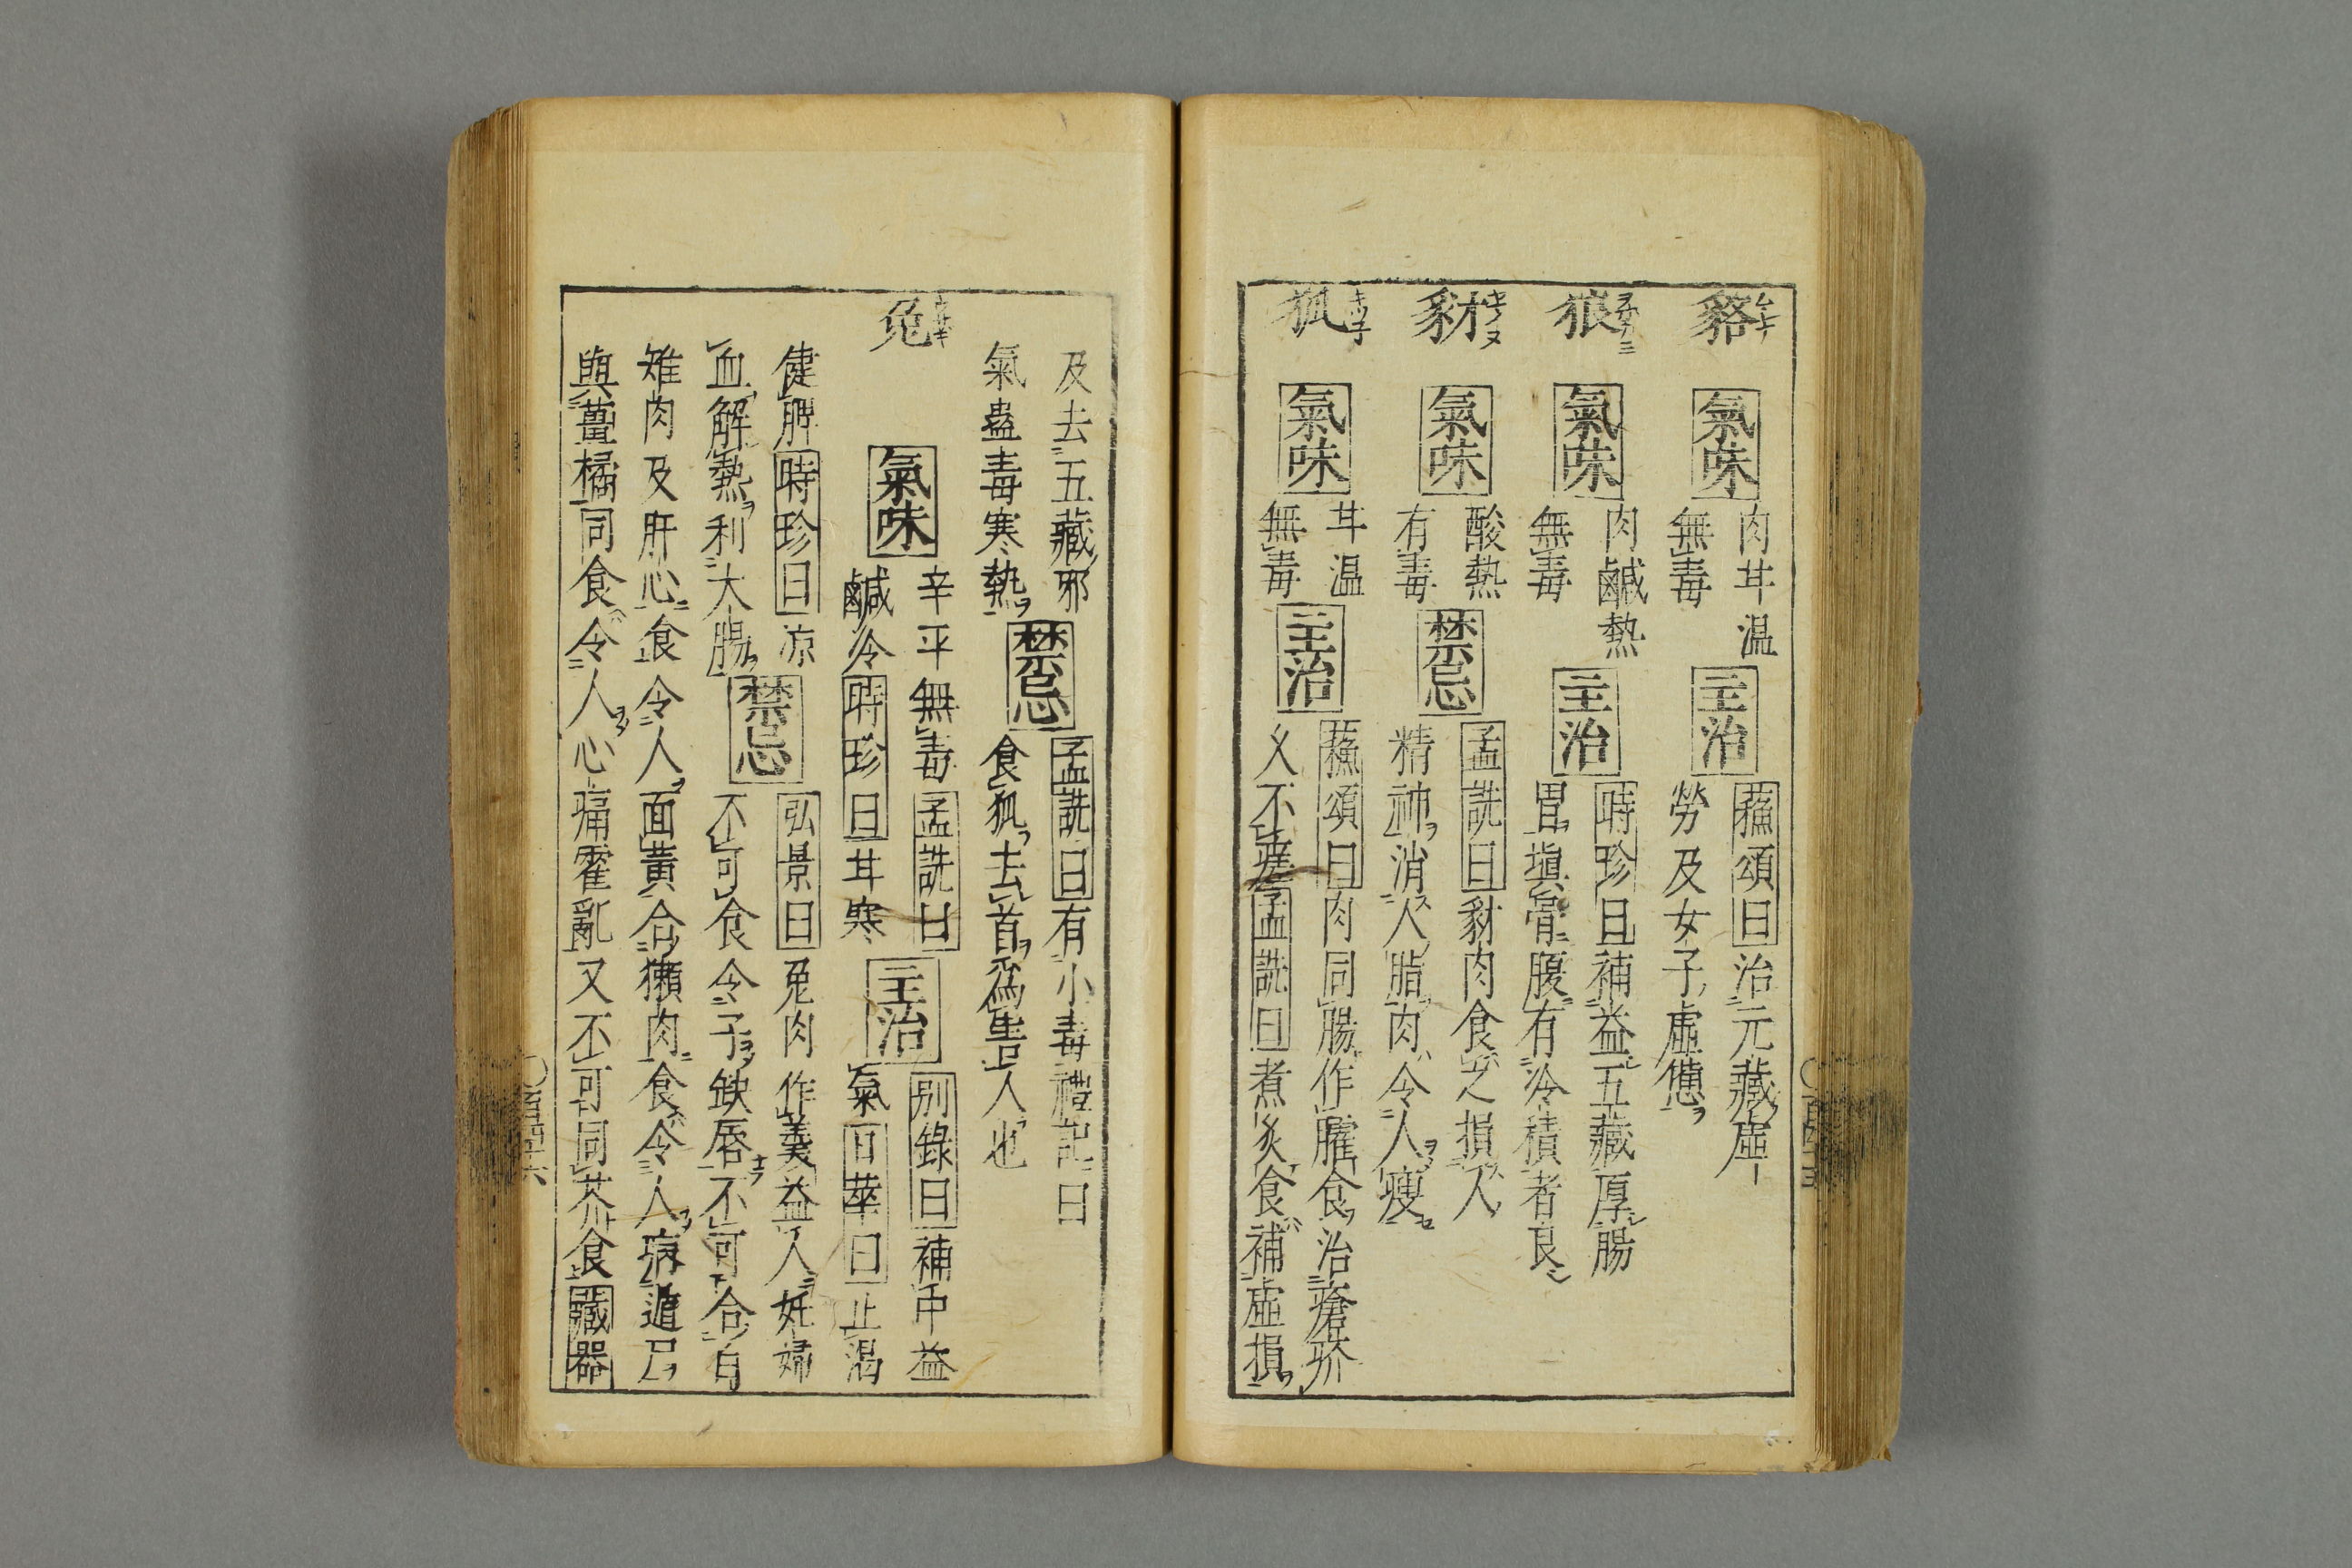 貉
氣味
肉甘温
無毒
主治
蘓頌曰治元藏虛
勞及女子虛憊
狼
氣味
肉鹹熱
無毒
主治
時珍曰補益五藏厚腸
胃塡骨髓腹有冷積者良
豺
氣味
酸熱
有毒
禁忌
孟詵曰豺肉食之損人
精神消人脂肉令人瘦
狐
氣味
甘温
無毒
主治
蘓頌曰肉同腸作臛食治瘡疥
乂不瘥孟詵曰煮炙食補虛損
及去五藏邪
氣蠱毒寒熱
禁忌
孟詵曰有小毒禮記曰
食狐去首爲害人也
兔
氣味
辛平無毒孟詵曰
鹹冷時珍曰甘寒
主治
別錄曰補中益
氣日華曰止渴
健脾時珍曰凉
血解熱利大腸
禁忌
弘景曰兔肉作羹益人妊婦
不可食令子缺唇不可合白
雉肉及肝心食令人面黃合獺肉食令人病遁尸
與薑橘同食令人心痛霍亂又不可同芥食藏器